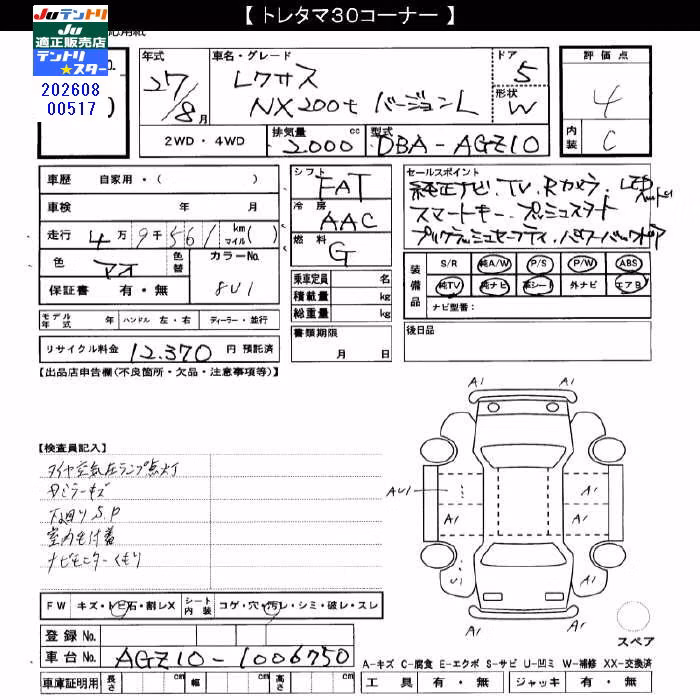 【 トレタマ30コーナー 】
Juテントリ
Ju
適正販売店
テントリ
★スター
202608
00517
年式
27/8月
車名・グレード
レクサス
NX200t バージョンL
ドア
5
形状
W
評価点
4
内装
C
2WD・4WD
排気量
2.000 cc
型式
DBA-AGZ10
車歴 自家用・( )
車検 年 月
走行 4万9千561 km マイル( )
色
アオ
色替
カラーNo.
8U1
保証書 有・無
シフト
FAT
冷房
AAC
燃料
G
乗車定員 名
積載量 kg
総重量 kg
セールスポイント
純正ナビ.TV.Rカメラ.LED
スマートキー.プッシュスタート
プリクラッシュセーフティ.パワーバックドア
装備品
S/R 純A/W P/S P/W ABS
純TV 純ナビ 革シート 外ナビ エアB
ナビ型番:
モデル年式 年 ハンドル 左・右 ディーラー・並行
リサイクル料金 12.370 円 預託済
書類期限
月 日
後日品
【出品店申告欄(不良箇所・欠品・注意事項等)】
【検査員記入】
タイヤ空気圧ランプ点灯
Dミラーキズ
下回りS.P
室内毛付着
ナビモニターくもり
A1 A1
AU1 A1
A1 A1
U1 A1
A1 A1
スペア
FW キズ・トビ石・割レX シート内装 コゲ・穴・汚レ・シミ・破レ・スレ
登録No.
車台No. AGZ10-1006750
車庫証明用 長さ cm 幅 cm 高さ cm
A-キズ C-腐食 E-エクボ S-サビ U-凹ミ W-補修 XX-交換済
工具 有・無 ジャッキ 有・無